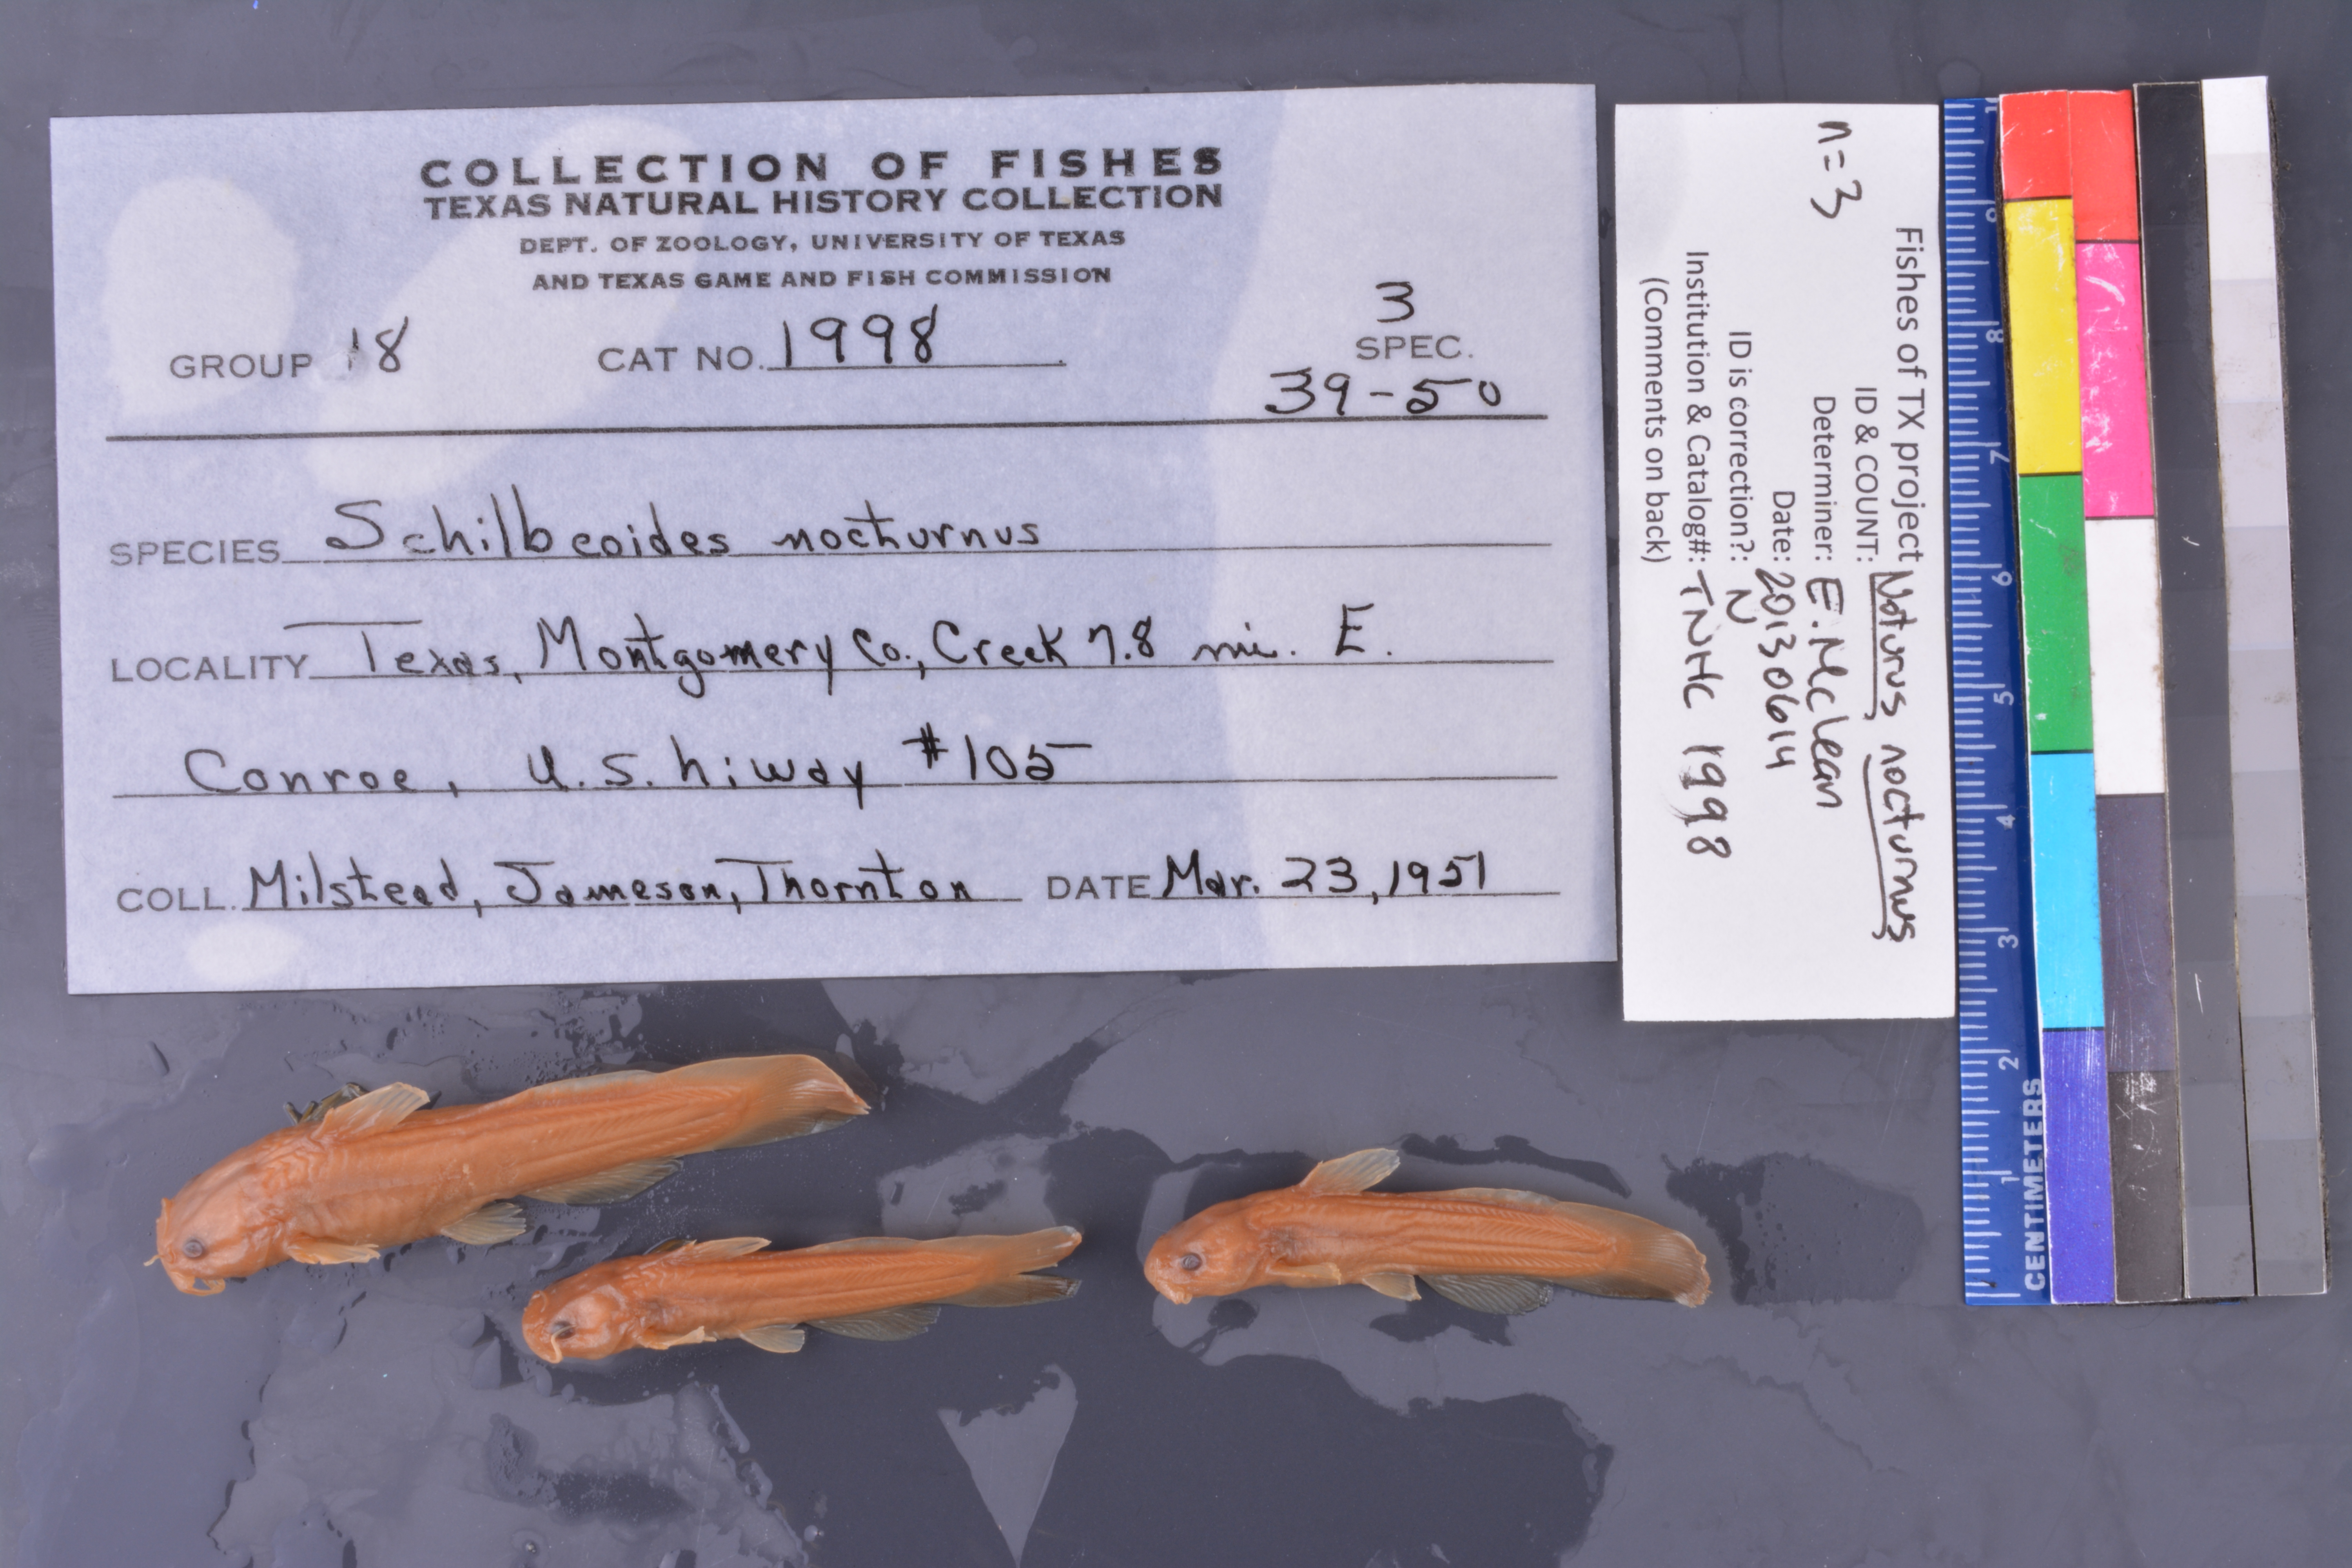 COLLECTION OF FISHES
TEXAS NATURAL HISTORY COLLECTION
DEPT. OF ZOOLOGY, UNIVERSITY OF TEXAS
AND TEXAS GAME AND FISH COMMISSION
GROUP 18 CAT NO. 1998 3 SPEC.
39-50
SPECIES Schilbeoides nocturnus
LOCALITY Texas, Montgomery Co., Creek 7.8 mi. E.
Conroe, U.S. hiway #105
COLL. Milstead, Jameson, Thornton DATE Mar. 23, 1951
n=3
Fishes of TX project
ID & COUNT: Noturus nocturnus
Determiner: E. McLean
Date: 20130614
ID is correction?: N
Institution & Catalog#: TNHC 1998
(Comments on back)
CENTIMETERS 1 2 3 4 5 6 7 8 9